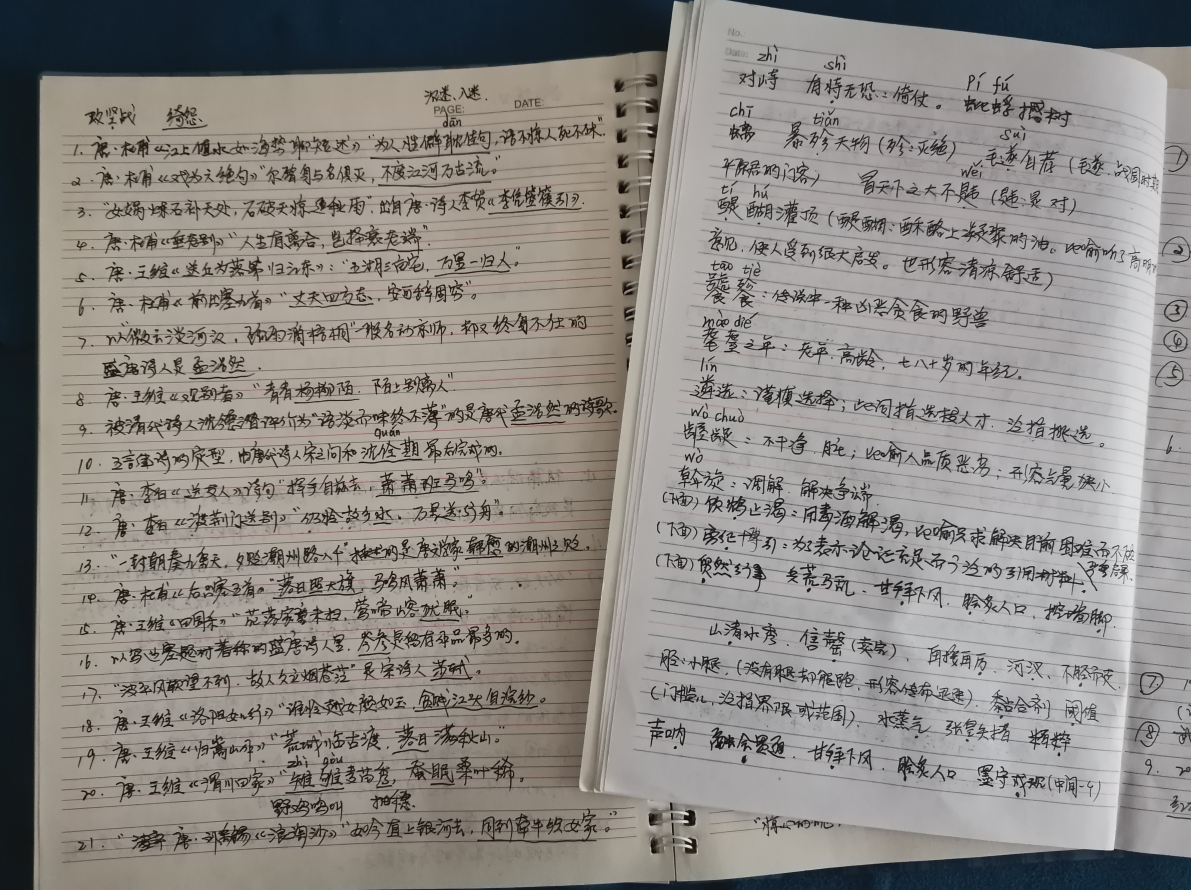 沉迷、入迷.
攻坚战 绮怨
PAGE: DATE:
dān
1. 唐·杜甫《江上值水如海势聊短述》"为人性僻耽佳句, 语不惊人死不休".
2. 唐·杜甫《戏为六绝句》"尔曹身与名俱灭, 不废江河万古流."
3. "女娲炼石补天处, 石破天惊逗秋雨" 出自唐·诗人李贺《李凭箜篌引》.
4. 唐·杜甫《垂老别》"人生有离合, 岂择衰老端".
5. 唐·王维《送丘为落第归江东》: "五湖三亩宅, 万里一归人".
6. 唐·杜甫《前出塞九首》"丈夫四方志, 安可辞固穷".
7. 以"微云淡河汉, 疏雨滴梧桐"一联名动京师, 却又终身不仕的
盛唐诗人是孟浩然.
8. 唐·王维《观别者》"青青杨柳陌, 陌上别离人"
9. 被清代诗人沈德潜评价为"语淡而味终不薄"的是唐代孟浩然的诗歌.
quán
10. 五言律诗的定型, 由唐代诗人宋之问和沈佺期最后完成的.
11. 唐·李白《送友人》诗句"挥手自兹去, 萧萧班马鸣".
12. 唐·李白《渡荆门送别》"仍怜故乡水, 万里送行舟".
13. "一封朝奏九重天, 夕贬潮州路八千"描述的是唐韩愈的潮州之贬.
14. 唐·杜甫《后出塞五首》"落日照大旗, 马鸣风萧萧".
15. 唐·王维《田园乐》"花落家童未扫, 莺啼山客犹眠."
16. 以写边塞题材著称的盛唐诗人里, 岑参是留存作品最多的.
17. "波平风软望不到, 故人久立烟苍茫"是宋诗人苏轼.
18. 唐·王维《洛阳女儿行》"谁怜越女颜如玉, 贫贱江头自浣纱.
19. 唐·王维《归嵩山作》"荒城临古渡, 落日满秋山."
zhì gòu
20. 唐·王维《渭川田家》"雉雊麦苗秀, 蚕眠桑叶稀.
野鸡鸣叫
21. 唐·刘禹锡《浪淘沙》"如今直上银河去, 同到牵牛织女家."
No.:
Date:
zhì shì pí fú
对峙 有恃无恐: 倚仗。 蚍蜉撼树
chī tiǎn suì
螭 暴殄天物 (殄: 灭绝) 毛遂自荐 (毛遂, 战国时
wěi
平原君的门客) 冒天下之大不韪 (韪: 是 对)
tí hú
醍醐灌顶 (醍醐: 酥酪上凝聚的油。比喻听了高明的
意见, 使人受到很大启发。也形容清凉舒适)
tāo tiè
饕餮: 传说中一种凶恶贪食的野兽
mào dié
耄耋之年: 老年、高龄, 七八十岁的年纪.
lín
遴选: 谨慎选择; 此词指选拔人才, 泛指挑选。
wò chuò
龌龊: 不干净, 脏; 比喻人品质恶劣; 形容气量狭小
wò
斡旋: 调解. 解决争端
(下面) 饮鸩止渴: 用毒酒解渴, 比喻只求解决目前困难而不顾
严重后果.
(下面) 旁征博引: 为了表示论证充足而广泛的引用材料
(下面) 贸然行事 兵荒马乱, 甘拜下风, 脍炙人口, 挖墙脚.
山清水秀、信誓 再接再厉、河汉、不胫而走
胫: 小腿, (没有腿却能跑, 形容传布迅速). 黏合剂 阈值
(门槛儿, 泛指界限或范围), 水蒸气 张皇失措 精粹
声呐 融会贯通 甘拜下风, 脍炙人口 墨守成规 (中间-4)
①
②
③
④
⑤
6.
⑦
⑧
9.